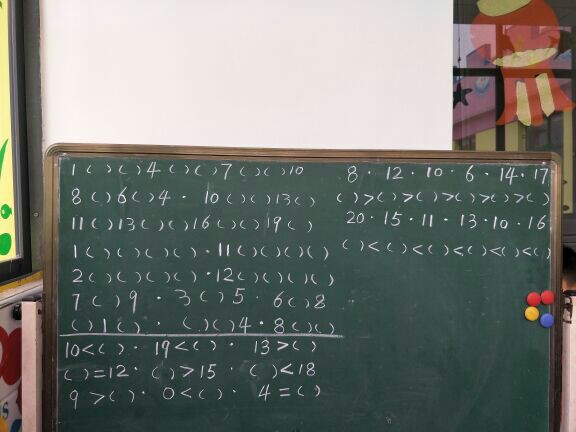 1 ( ) ( ) 4 ( ) ( ) 7 ( ) ( ) 10
8 ( ) 6 ( ) 4 · 10 ( ) ( ) 13 ( )
11 ( ) 13 ( ) ( ) 16 ( ) ( ) 19 ( )
1 ( ) ( ) ( ) ( ) · 11 ( ) ( ) ( ) ( )
2 ( ) ( ) ( ) ( ) · 12 ( ) ( ) ( ) ( )
7 ( ) 9 · 3 ( ) 5 · 6 ( ) 8
( ) 1 ( ) · ( ) ( ) 4 · 8 ( ) ( )
10 < ( ) · 19 < ( ) · 13 > ( )
( ) = 12 · ( ) > 15 · ( ) < 18
9 > ( ) · 0 < ( ) · 4 = ( )
8 · 12 · 10 · 6 · 14 · 17
( ) > ( ) > ( ) > ( ) > ( ) > ( )
20 · 15 · 11 · 13 · 10 · 16
( ) < ( ) < ( ) < ( ) < ( ) < ( )